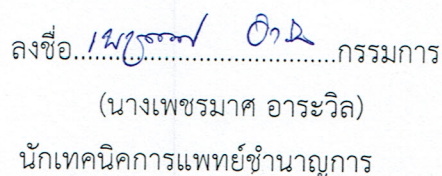 ลงชื่อ....................................กรรมการ
(นางเพชรมาศ อาระวิล)
นักเทคนิคการแพทย์ชำนาญการ